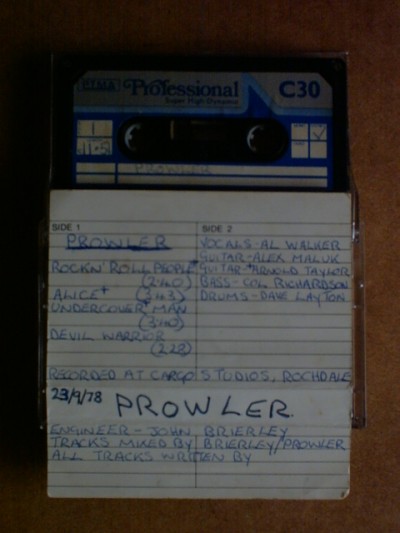 Professional C30
Super High Dynamic
1
PROWLER
SIDE 1 SIDE 2
PROWLER VOCALS - AL WALKER
GUITAR - ALEX MALUK
ROCK N' ROLL PEOPLE* GUITAR-*ARNOLD TAYLOR
(2:40) BASS - COL RICHARDSON
ALICE+ (3:43) DRUMS - DAVE LAYTON
UNDERCOVER MAN
(3:40)
DEVIL WARRIOR
(2:28)
RECORDED AT CARGO STUDIOS, ROCHDALE
23/9/78 PROWLER.
ENGINEER - JOHN BRIERLEY
TRACKS MIXED BY BRIERLEY/PROWLER
ALL TRACKS WRITTEN BY